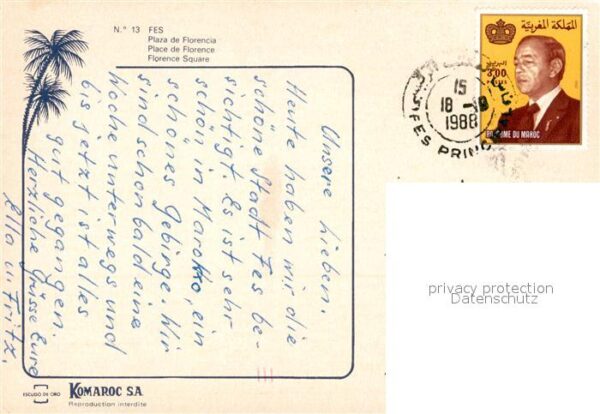 N.° 13 FES
Plaza de Florencia
Place de Florence
Florence Square
Unsere Lieben.
Heute haben wir die
schöne Stadt Fes be-
sichtigt Es ist sehr
schön in Marokko, ein
schönes Gebirge. Wir
sind schon bald eine
Woche unterwegs und
bis jetzt ist alles
gut gegangen.
Herzliche Grüsse Eure
Ella u Fritz.
المملكة المغربية
البريد
3,00
POSTES
ROYAUME DU MAROC
15
18 -10
1988
FES PRINC
privacy protection
Datenschutz
ESCUDO DE ORO
KOMAROC S.A.
Reproduction interdite